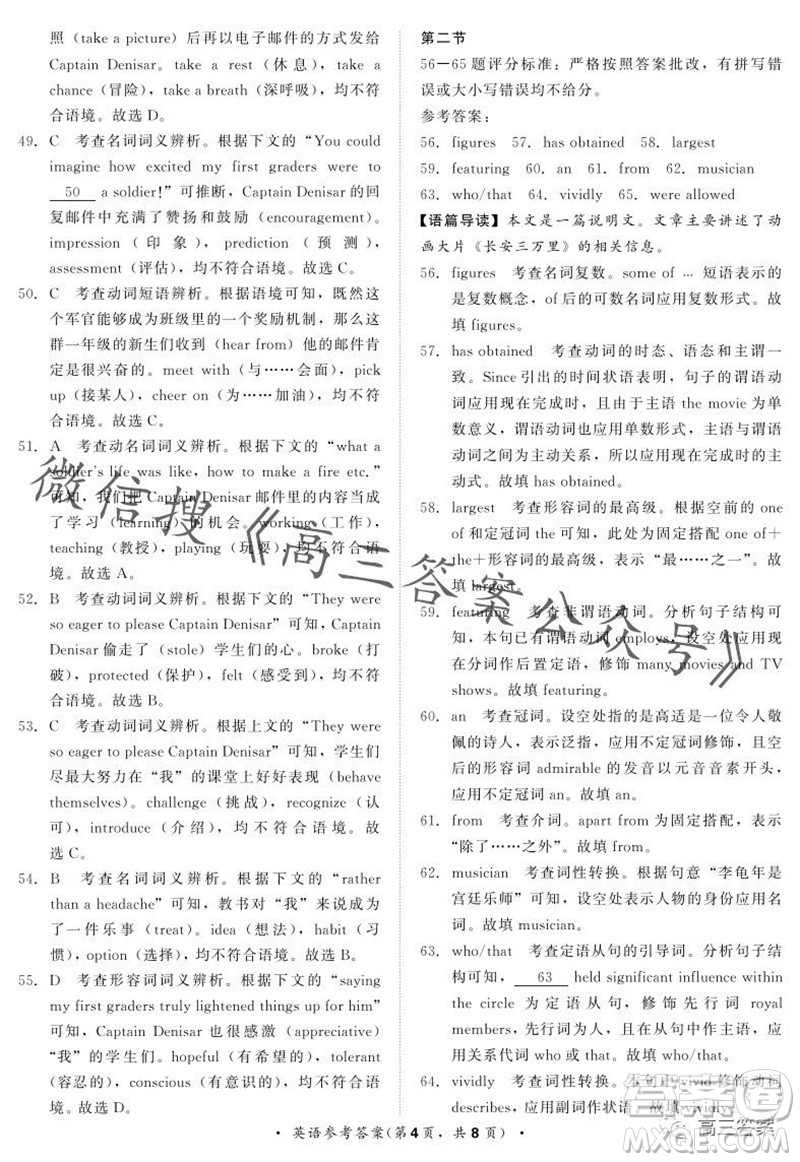 照（take a picture）后再以电子邮件的方式发给
Captain Denisar。take a rest（休息），take a
chance（冒险），take a breath（深呼吸），均不符
合语境。故选 D。
49. C 考查名词词义辨析。根据下文的“You could
imagine how excited my first graders were to
50 a soldier!”可推断，Captain Denisar 的回
复邮件中充满了赞扬和鼓励（encouragement）。
impression（印象），prediction（预测），
assessment（评估），均不符合语境。故选 C。
50. C 考查动词短语辨析。根据语境可知，既然这
个军官能够成为班级里的一个奖励机制，那么这
群一年级的新生们收到（hear from）他的邮件肯
定是很兴奋的。meet with（与……会面），pick
up（接某人），head for（为……加油），均不符合
语境。故选 C。
51. A 考查动名词词义辨析。根据下文的“what a
soldier's life was like, how to make a fire etc.”
可知，我们把 Captain Denisar 邮件里的内容当成
了学习（learning）的机会。working（工作），
teaching（教授），playing（玩耍），均不符合语
境。故选 A。
52. B 考查动词词义辨析。根据下文的“They were
so eager to please Captain Denisar”可知，Captain
Denisar 偷走了（stole）学生们的心。broke（打
破），protected（保护），felt（感受到），均不符合
语境。故选 B。
53. C 考查动词词义辨析。根据上文的“They were
so eager to please Captain Denisar”可知，学生们
尽最大努力在“我”的课堂上好好表现（behave
themselves）。challenge（挑战），recognize（认
可），introduce（介绍），均不符合语境。故
选 C。
54. B 考查名词词义辨析。根据下文的“rather
than a headache”可知，教书对“我”来说成为
了一件乐事（treat）。idea（想法），habit（习
惯），option（选择），均不符合语境。故选 B。
55. D 考查形容词词义辨析。根据下文的“saying
my first graders truly lightened things up for him”
可知，Captain Denisar 也很感激（appreciative）
“我”的学生们。hopeful（有希望的），tolerant
（容忍的），conscious（有意识的），均不符合语
境。故选 D。
第二节
56—65 题评分标准：严格按照答案批改，有拼写错
误或大小写错误均不给分。
参考答案：
56. figures 57. has obtained 58. largest
59. featuring 60. an 61. from 62. musician
63. who/that 64. vividly 65. were allowed
【语篇导读】本文是一篇说明文。文章主要讲述了动
画大片《长安三万里》的相关信息。
56. figures 考查名词复数。some of … 短语表示的
是复数概念，of 后的可数名词应用复数形式。故
填 figures。
57. has obtained 考查动词的时态、语态和主谓一
致。Since 引出的时间状语表明，句子的谓语动
词应用现在完成时，且由于主语 the movie 为单
数意义，谓语动词应用单数形式。主语与谓语
动词之间为主动关系，所以用现在完成时的主
动式。故填 has obtained。
58. largest 考查形容词的最高级。根据空前的 one
of 和定冠词 the 可知，此处为固定搭配 one of＋
the＋形容词的最高级，表示“最……之一”。故
填 largest。
59. featuring 考查非谓语动词。分析句子结构可
知，本句已有谓语动词 employs，设空处应用现
在分词作后置定语，修饰 many movies and TV
shows。故填 featuring。
60. an 考查冠词。设空处指的是高适是一位令人敬
佩的诗人，表示泛指，应用不定冠词修饰，且后
面的形容词 admirable 的发音以元音音素开头，
应用不定冠词 an。故填 an。
61. from 考查介词。apart from 为固定搭配，表示
“除了……之外”。故填 from。
62. musician 考查词性转换。根据句意“李龟年是
宫廷乐师”可知，设空处表示人物的身份应用名
词。故填 musician。
63. who/that 考查定语从句的引导词。分析句子结
构可知，63 held significant influence within
the circle 为定语从句，修饰先行词 royal
members，先行词为人，且在从句中作主语，应
用关系代词 who 或 that。故填 who/that。
64. vividly 考查词性转换。本句中 vivid 修饰动词
describes，应用副词作状语。故填 vividly。
· 英语参考答案（第 4 页，共 8 页）·
微信搜《高三答案公众号》
高三答案